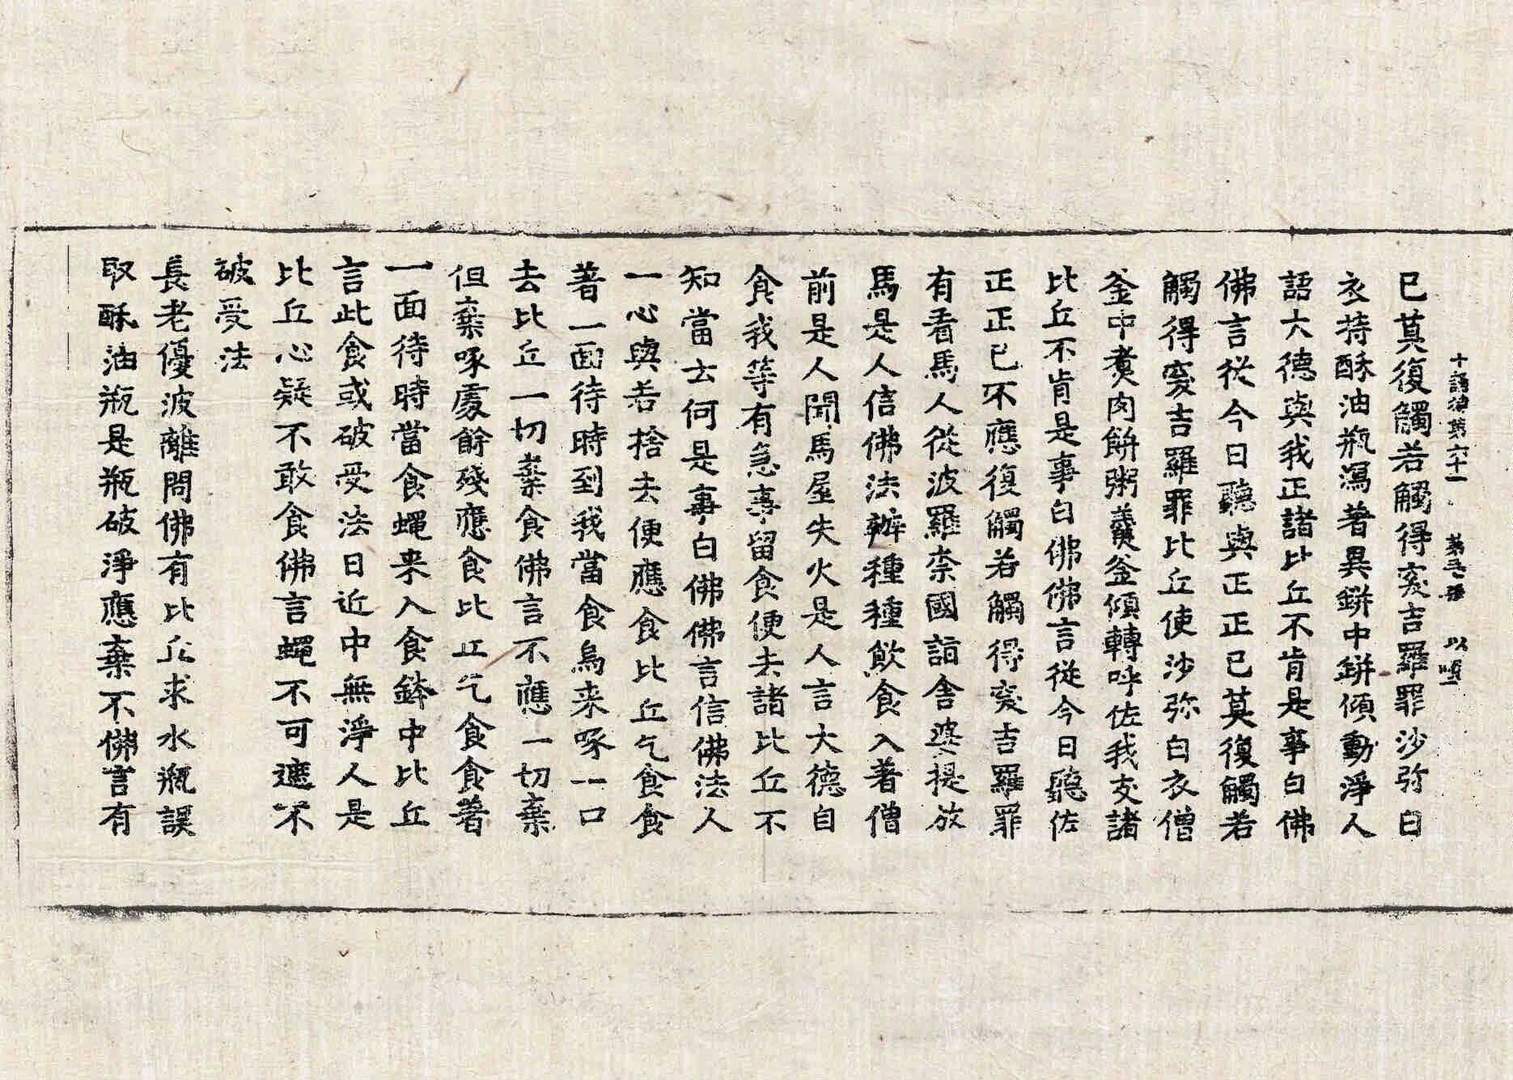 十誦律第六十一 第 張 以
已莫復觸若觸得突吉羅罪沙弥白
衣持酥油瓶瀉著異鉼中鉼傾動淨人
語大德與我正諸比丘不肯是事白佛
佛言從今日聽與正正已莫復觸若
觸得突吉羅罪比丘使沙弥白衣僧
釜中煑肉餅粥羹釜傾轉呼佐我支諸
比丘不肯是事白佛佛言從今日聽佐
正正已不應復觸若觸得突吉羅罪
有看馬人從波羅柰國詣舍婆提放
馬是人信佛法辦種種飲食入著僧
前是人聞馬屋失火是人言大德自
食我等有急事留食便去諸比丘不
知當去何是事白佛佛言信佛法人
一心與若捨去便應食比丘乞食食
著一面待時到我當食烏来啄一口
去比丘一切棄食佛言不應一切棄
但棄啄處餘殘應食比丘乞食食著
一面待時當食蝿来入食鉢中比丘
言此食或破受法日近中無淨人是
比丘心疑不敢食佛言蝿不可遮不
破受法
長老優波離問佛有比丘求水瓶誤
取酥油瓶是瓶破淨應棄不佛言有